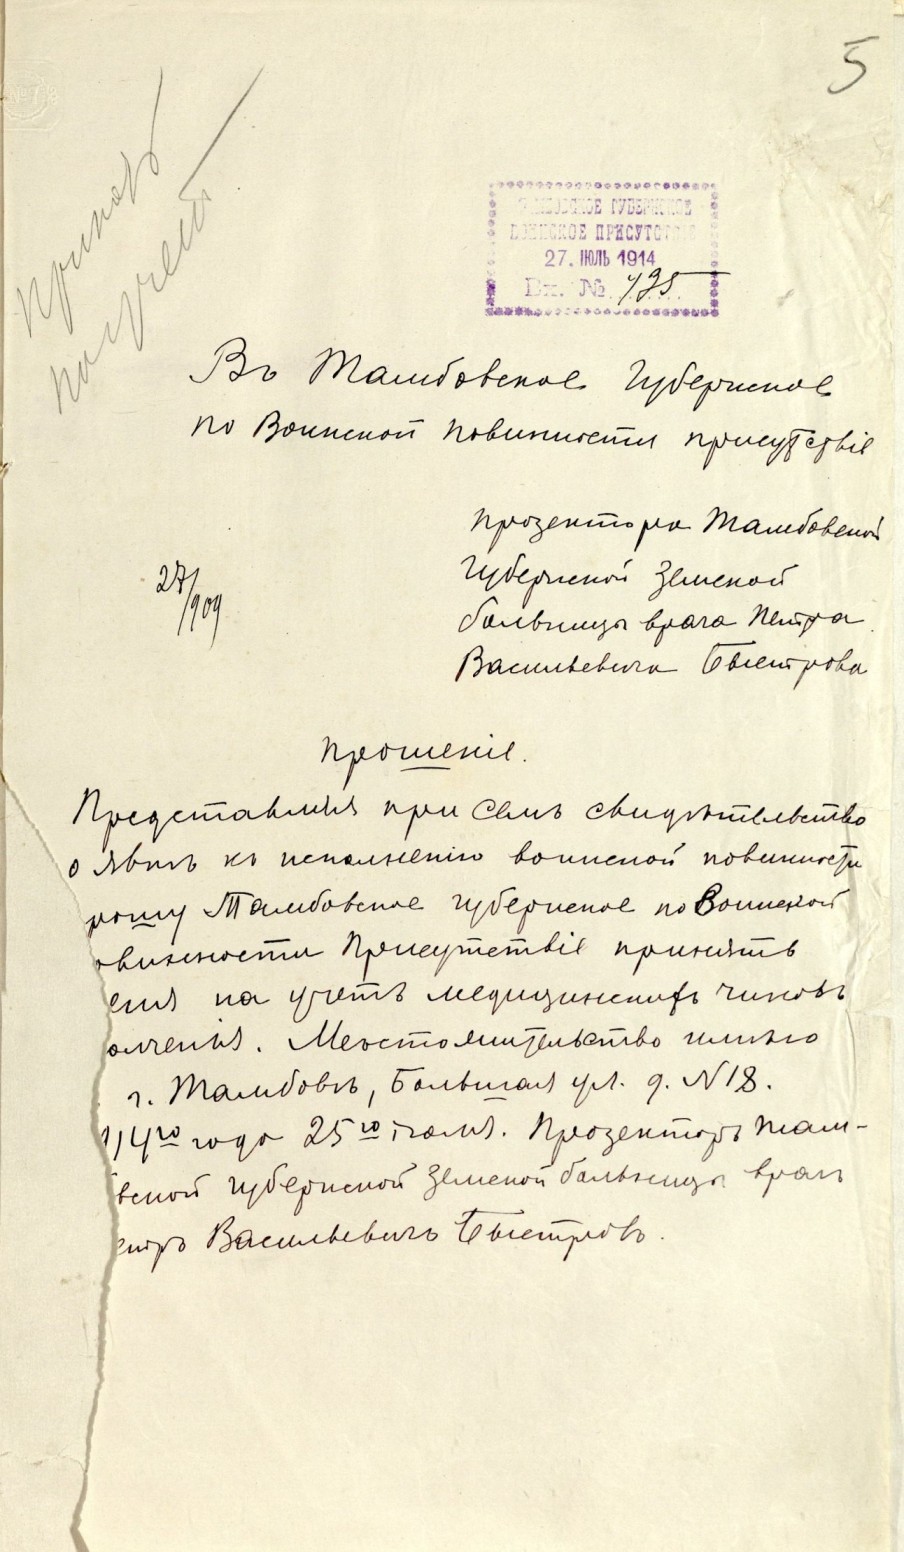 5
ТАМБОВСКОЕ ГУБЕРНСКОЕ
ВОИНСКОЕ ПРИСУТСТВІЕ
27. ІЮЛЬ 1914
Вх. №
Въ Тамбовское Губернское
по Воинской повинности присутствіе
прозектора Тамбовской
Губернской Земской
больницы врача Петра
Васильевича Быстрова
27/909
Прошеніе.
Представляя при семъ свидѣтельство
о явкѣ къ исполненію воинской повинности
рошу Тамбовское губернское по Воинской
овинности Присутствіе принять
еня на учетъ медицинскихъ чиновъ
олченія. Мѣстожительство имѣю
г. Тамбовъ, Большая ул. д. N 18.
914го года 25го іюля. Прозекторъ Там-
вской губернской Земской больницы врачъ
етръ Васильевичъ Быстровъ.